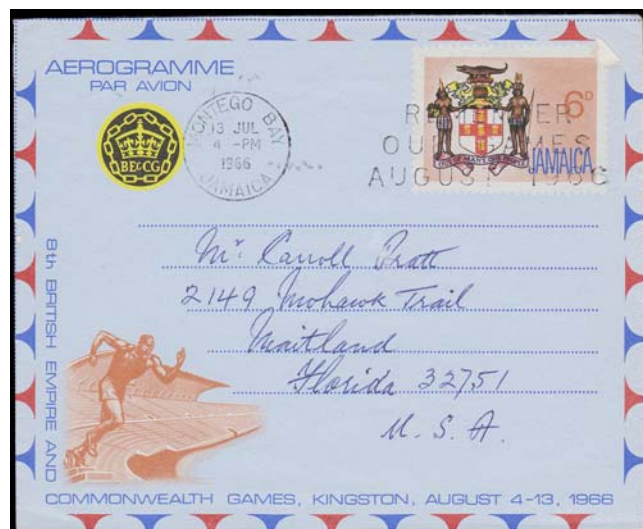 AEROGRAMME
PAR AVION
BE&CG
MONTEGO BAY
13 JUL
4 -PM
1966
JAMAICA
REMEMBER
OUR GAMES
AUGUST 1966
6D
JAMAICA
OUT OF MANY, ONE PEOPLE
Mr. Carroll Pratt
2149 Mohawk Trail
Maitland
Florida 32751
U. S. A.
8th BRITISH EMPIRE AND
COMMONWEALTH GAMES, KINGSTON, AUGUST 4-13, 1966